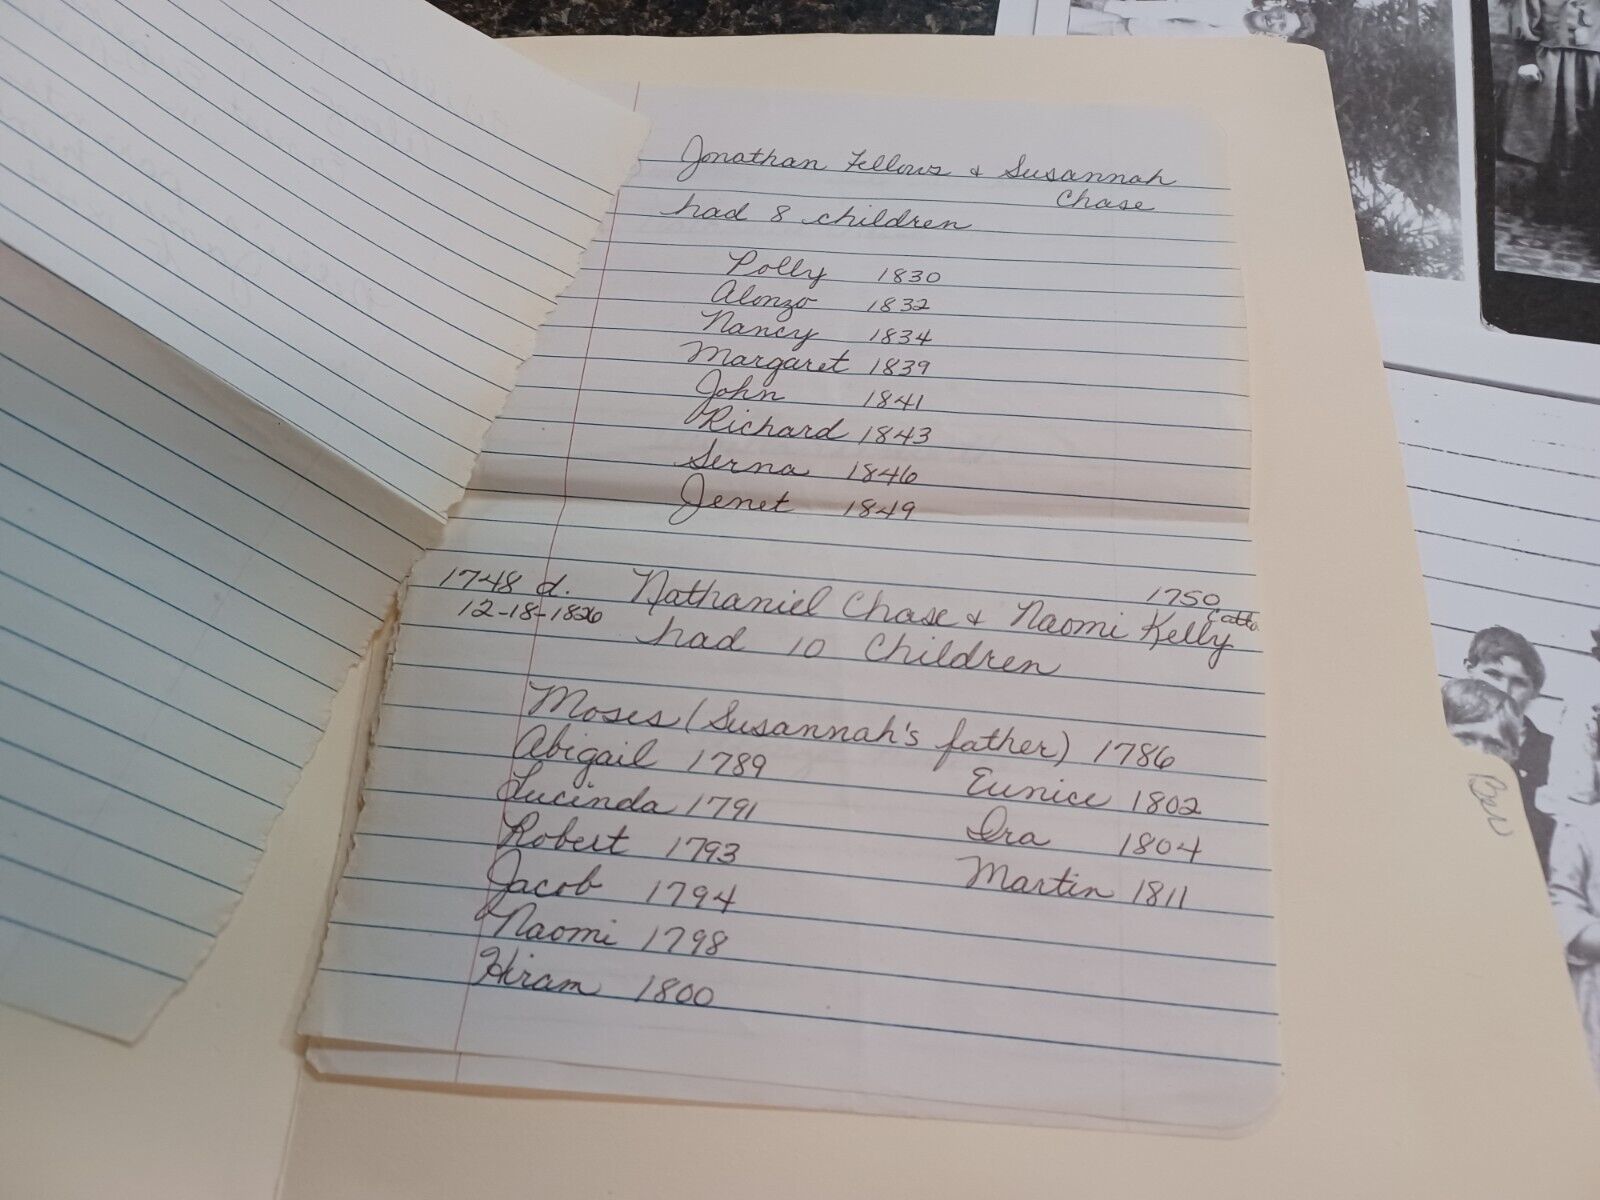 Jonathan Fellows & Susannah
Chase
had 8 children
Polly 1830
Alonzo 1832
Nancy 1834
Margaret 1839
John 1841
Richard 1843
Serna 1846
Jenet 1849
1748 d. Nathaniel Chase & Naomi Kelly 1750
12-18-1826
had 10 Children
Moses (Susannah's father) 1786
Abigail 1789 Eunice 1802
Lucinda 1791 Ira 1804
Robert 1793 Martin 1811
Jacob 1794
Naomi 1798
Hiram 1800